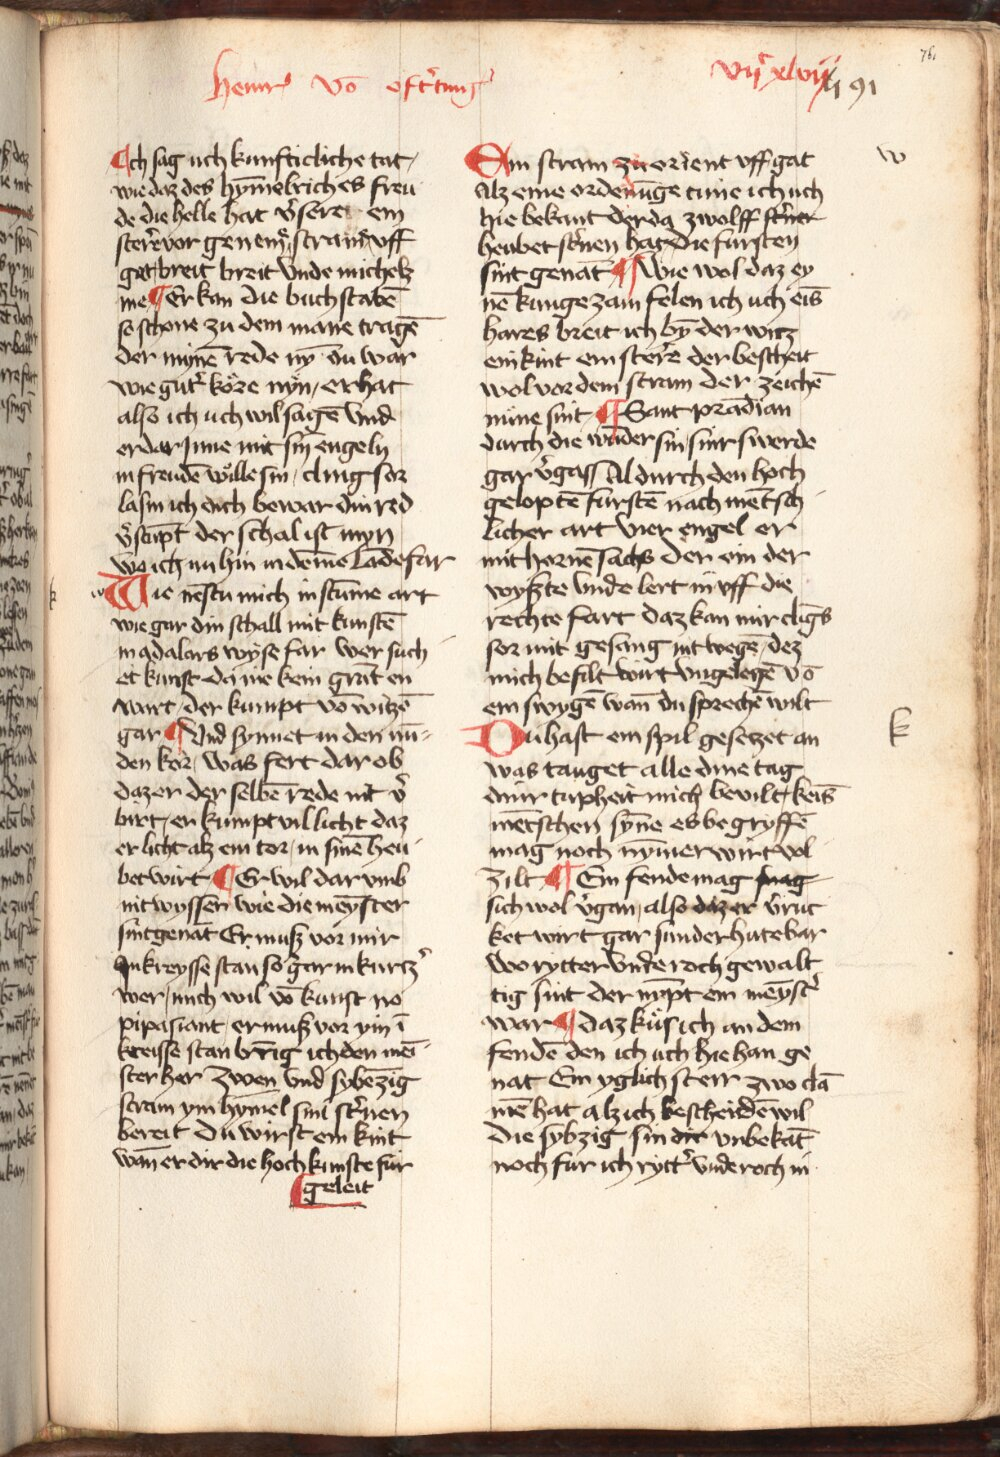 Heinr vō oft'ting'
vij' xlvij
ij 91
761
Ich sag uch kunfticliche tat
wie daz des hȳmelriches freu
de die helle hat v'seret ein
stere vor genem stram uff
gat breit breit vnde michelz
me ¶ Er kan die buchstabē
so schone zu dem mane tragē
der mynē rede nȳ du war
wie gut' köre nyn er hat
also ich uch wil sagē vnd
er dar Inne mit sin engeln
in freudē wölle sin clingsor
lasin ich dich bewar din red
v'stupt der schal ist myn
wo ich nu hin in deme lāde far
Wie nēstu mich in stūme art
wie gar din schall mit kunstē
in adalars wyse far wer such
et kunst da nie kein grāt en
wart der kumpt vō witzē
gar ¶ Vnd synnet in den nū-
den kor was fert dar ob
daz er der selbē rede nit v'
birt er kumpt vil licht daz
er licht alz ein tor in sinē heu
bet wirt ¶ Er wil dar vmb
nit wyssen wie die meyster
sint genāt Er muß vor mir
In kreysse stan so gar in kurcz'
wer mich wil vō kunst no
pipasiant er muß vor yin ī
kreisse stan brīg ich den mei-
ster her zwen vnd sybēzig
stram ym hymel sint st'nen
bereit Du wirst ein kint
wan er dir die hoch kunste fur
geleit
w
Ein stram zu orient uff gat
Alz eine ordenūge tūne ich uch
hie bekant der da zwolff st'ner
heubet st'nen hat die fursten
sint genāt ¶ Wie wol daz ey
nē kunge zam felen ich uch eīs
hares breit ich by der witz
ein kint ein sterē der bescheit
wol vor dem stram der zeichē
nūne sint ¶ Sant prādian
durch die wūder sin sint swerde
gar v'gass Al durch den hoch
geloptē furstē nach mētsch
licher art vier engel er
mit hornē sach der ein der
wyßte vnde lert in uff die
rechte fart daz kan mir cligs
sor mit gesang nit wegē dez
mich befilt wirt vngelegē vō
ein swygē wan du sprechē wilt
k
Du hast ein spil gesetzet an
was tauget alle dine tag
dinr tupheit mich bevilt keīs
mētschen synne es begryffē
mag noch nymer wirt vol
zilt ¶ Ein fende mag mag
sich wol v'gan also daz er v'ruc
ket wirt gar sunder hute bar
wo rytter vnde roch gewalt
tig sint der nȳpt ein meyst'
war ¶ daz küs ich an dem
fendē den ich uch hie han ge
nat Ein yglich sterr zwo clā
mē hat alz ich bescheidē wil
die sybzig sin dir vnbekāt
noch fur ich rytt' vnde roch in